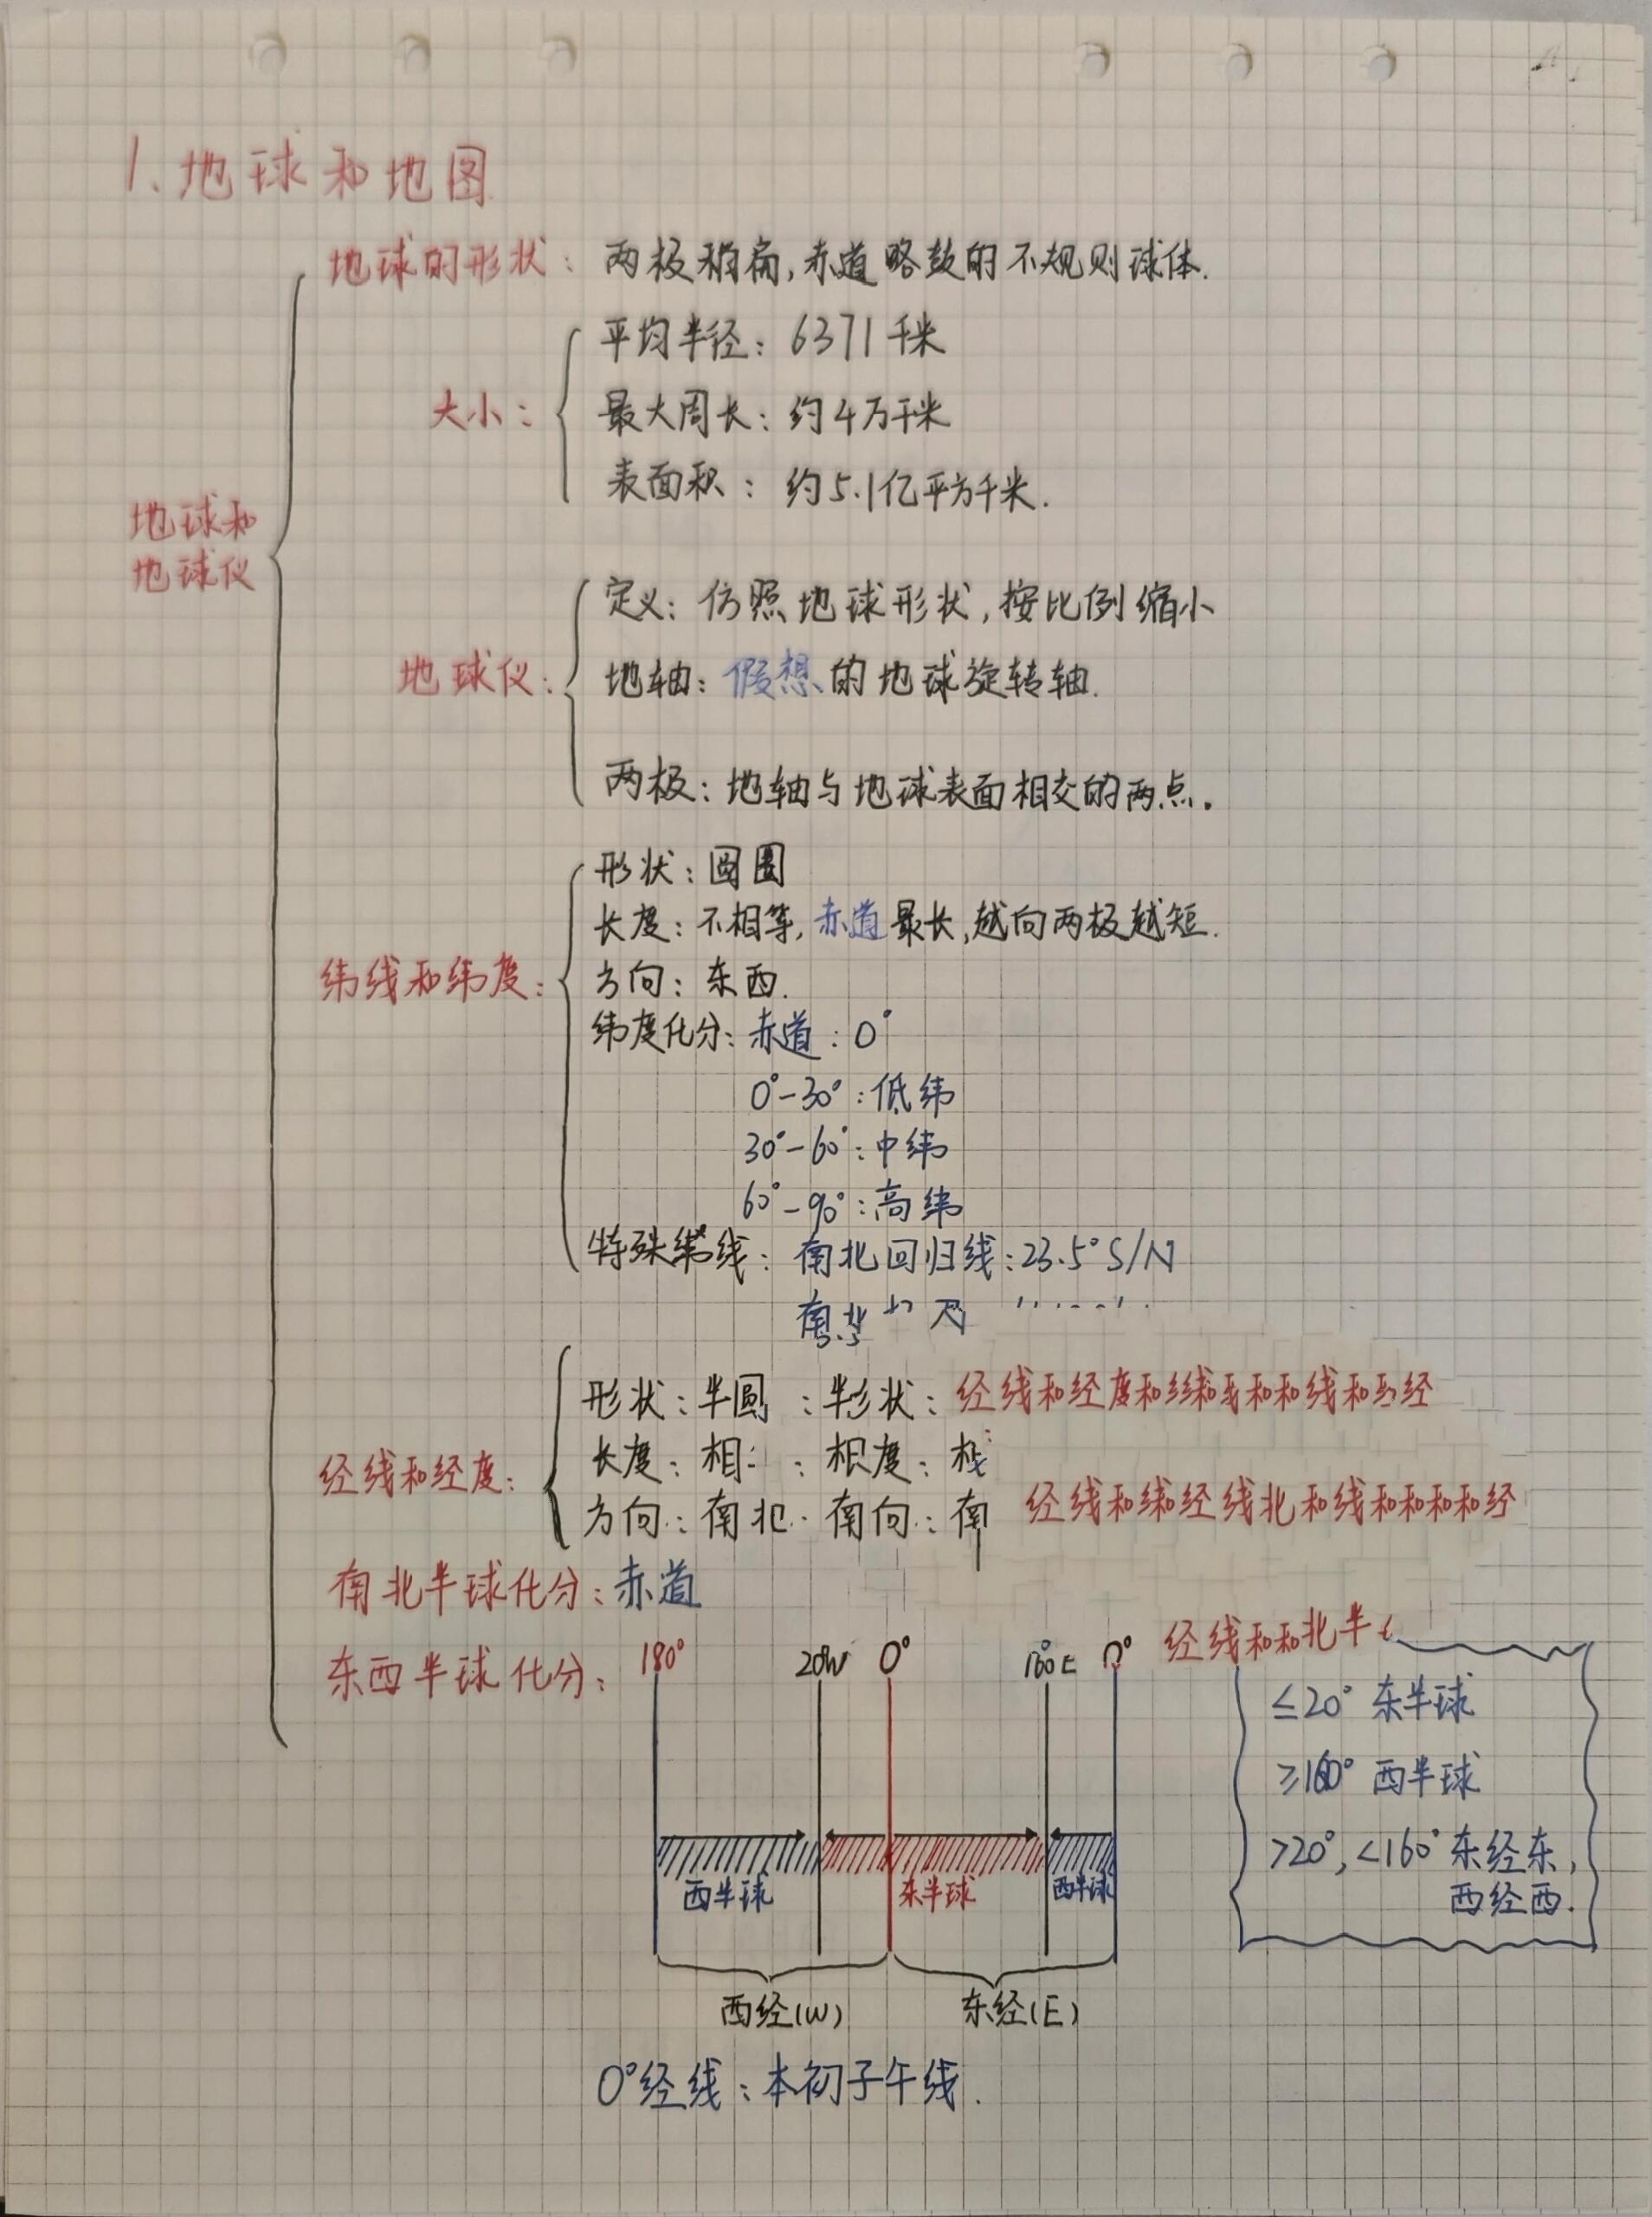 1、地球和地图
地球的形状：两极稍扁,赤道略鼓的不规则球体.
大小：
平均半径：6371千米
最大周长：约4万千米
表面积：约5.1亿平方千米.
地球和
地球仪
地球仪：
定义：仿照地球形状,按比例缩小
地轴：假想的地球旋转轴.
两极：地轴与地球表面相交的两点.
纬线和纬度：
形状：圆圈
长度：不相等,赤道最长,越向两极越短.
方向：东西.
纬度化分：赤道：0°
0°-30°：低纬
30°-60°：中纬
60°-90°：高纬
特殊纬线：南北回归线：23.5°S/N
南
经线和经度：
形状：半圆 ：状：经线和经度和 和和线和 经
长度：相 ： 度：
方向：南北 南向：南 经线和 经线北和线和和和和经
南北半球化分：赤道
东西半球化分：
180° 20W 0° 160E 经线和和北半
≤20° 东半球
≥160° 西半球
>20°,<160°东经东,
西经西.
西半球 东半球 西半球
西经(W) 东经(E)
0°经线：本初子午线.